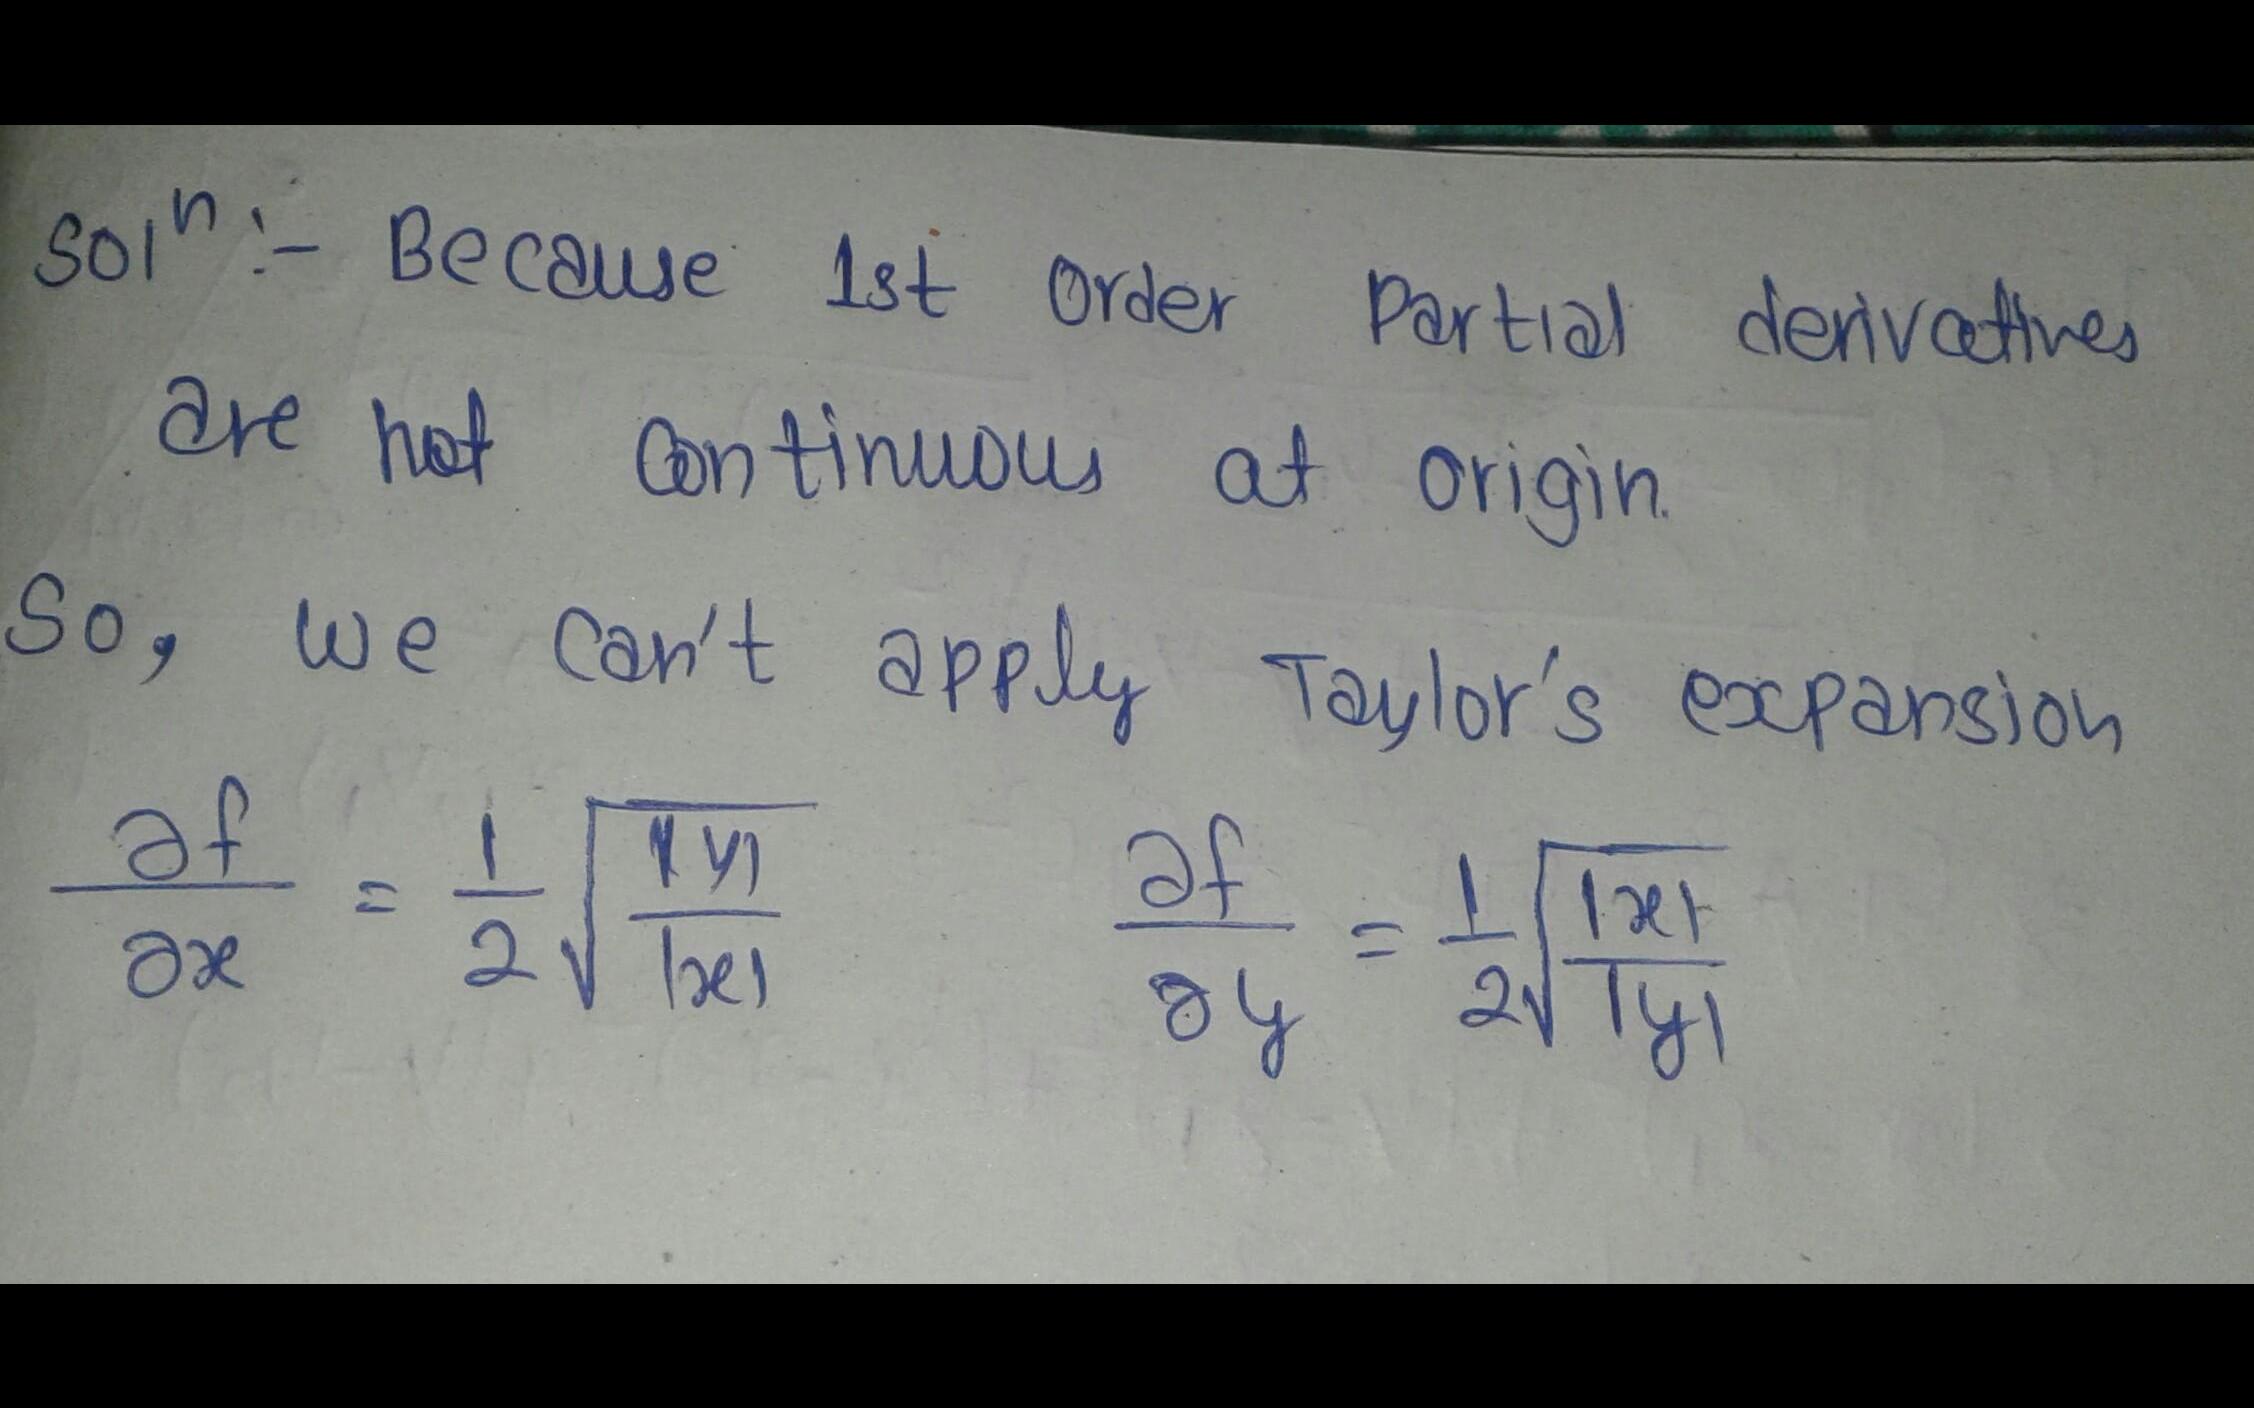 Solⁿ :- Because 1st order partial derivatives
are not continuous at origin.
So, we can't apply Taylor's expansion
∂f/∂x = 1/2 √(|y|/|x|)    ∂f/∂y = 1/2 √(|x|/|y|)